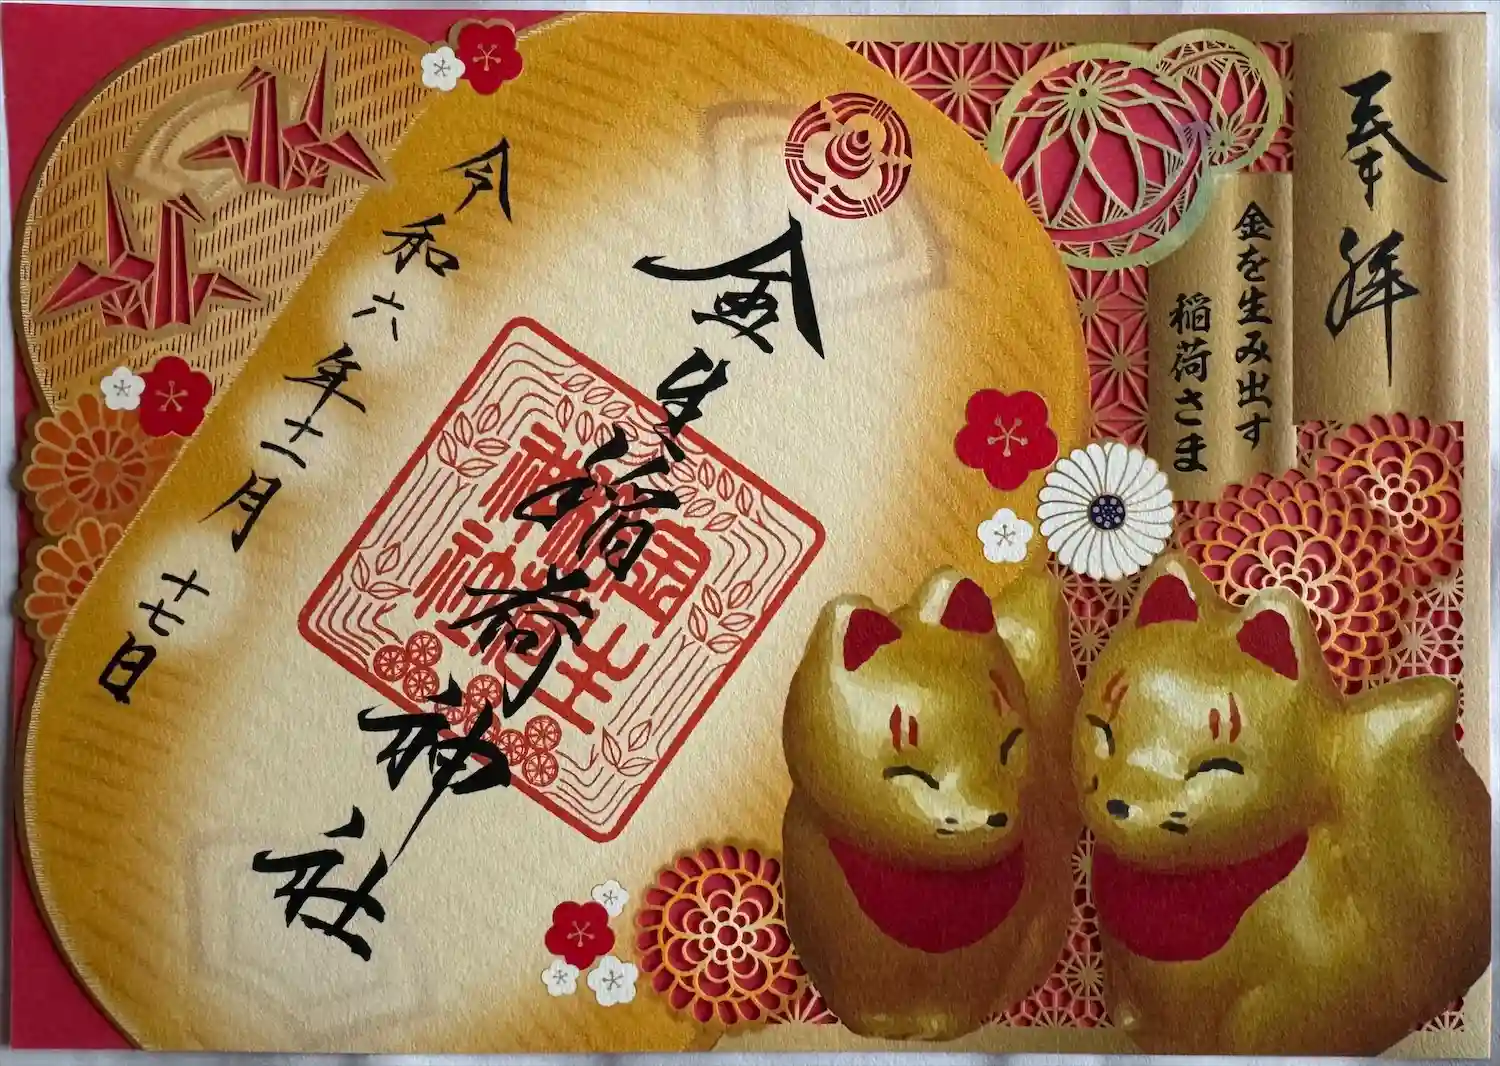 奉拝
金を生み出す
稲荷さま
金生稲荷神社
金生
稲荷
神社
令和六年十一月十七日